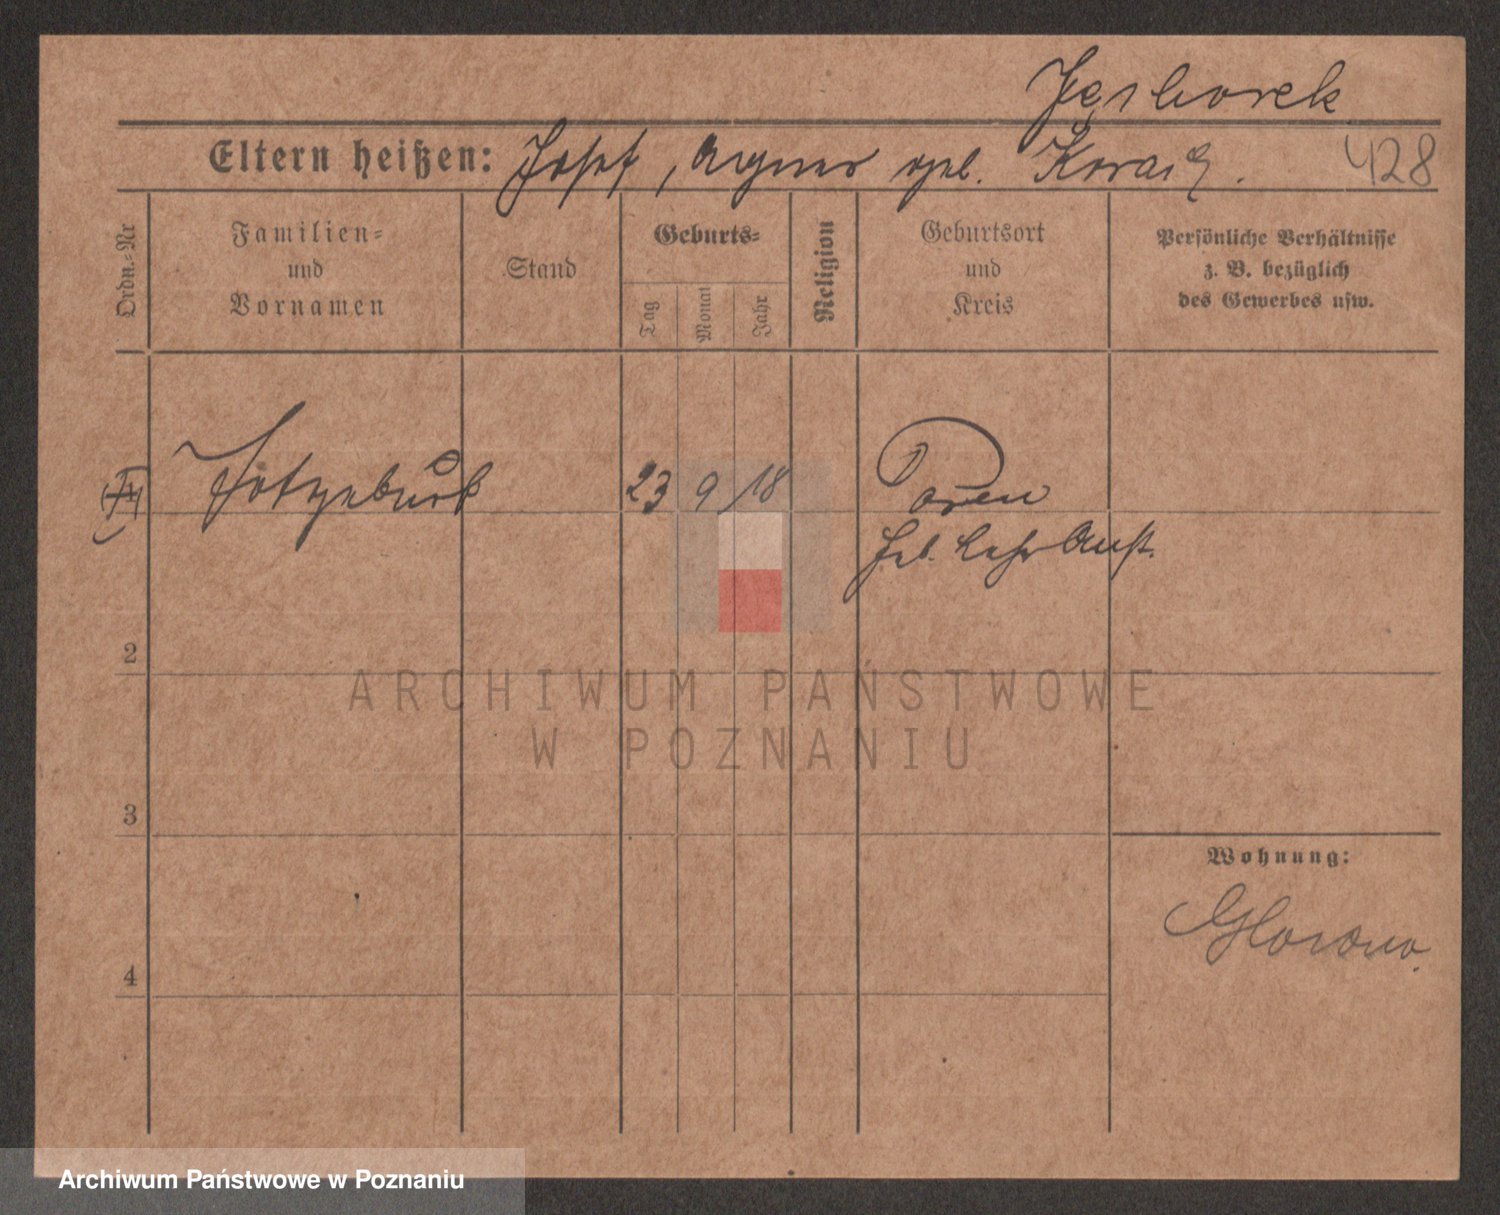 Jesiorek
Eltern heißen: Josef, Agnes geb.
428
Ordn.-Nr
Familien-
und
Vornamen
Stand
Geburts-
Tag
Monat
Jahr
Religion
Geburtsort
und
Kreis
Persönliche Verhältnisse
z. B. bezüglich
des Gewerbes usw.
Totgeburt
23 9 18
Posen
Heb. Lehr Anst.
2
3
4
Wohnung:
ARCHIWUM PAŃSTWOWE
W POZNANIU
Archiwum Państwowe w Poznaniu